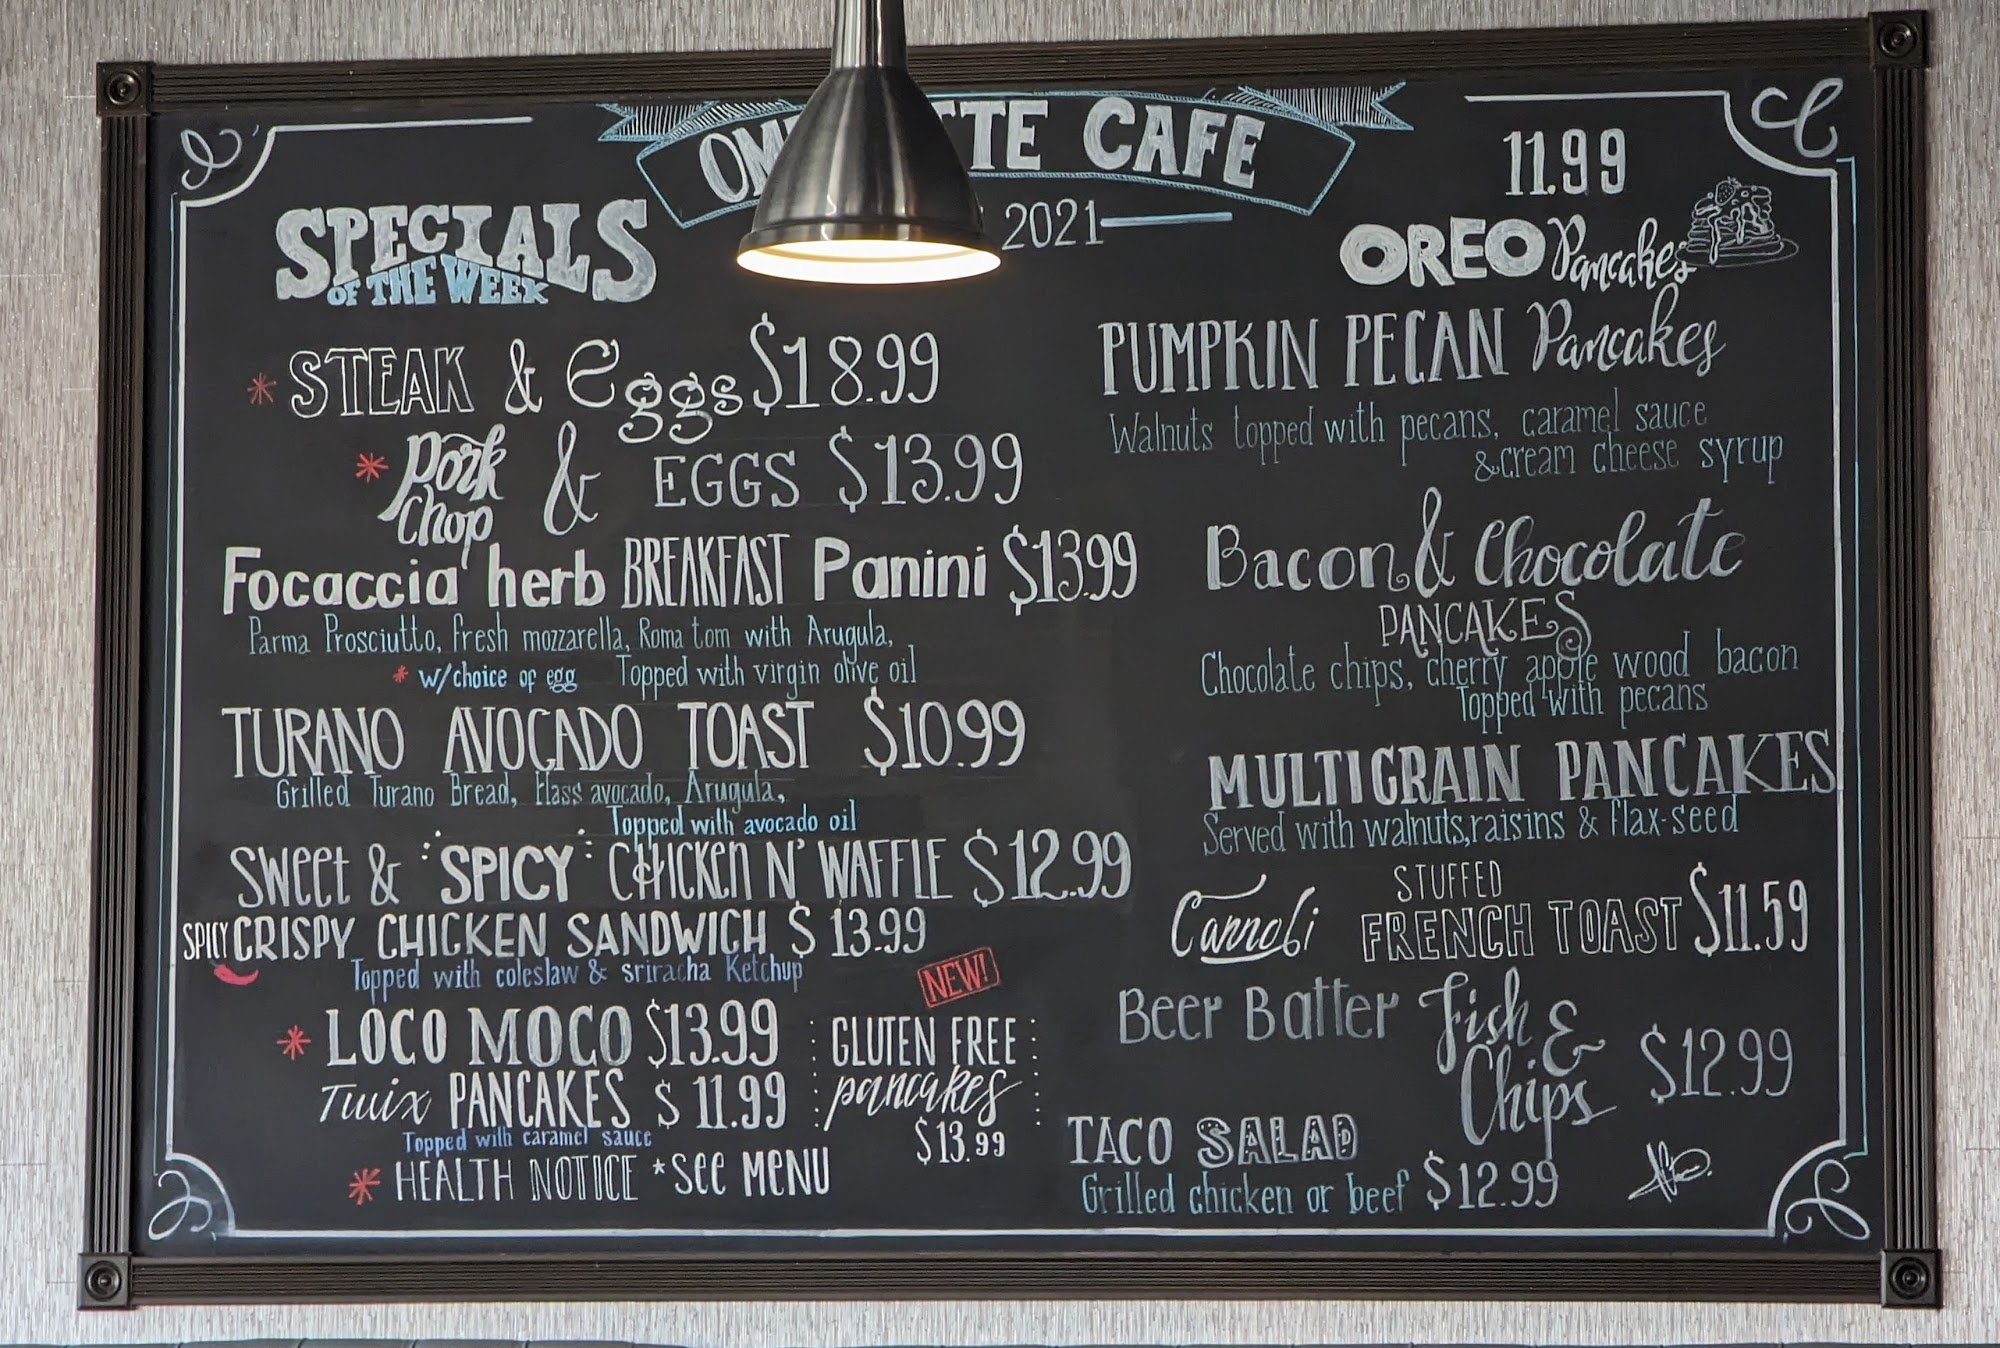 CAFE
2021
SPECIALS
OF THE WEEK
* STEAK & Eggs $18.99
* Pork Chop & EGGS $13.99
Focaccia herb BREAKFAST Panini $13.99
Parma Prosciutto, fresh mozzarella, Roma tom with Arugula,
* w/choice of egg Topped with virgin olive oil
TURANO AVOCADO TOAST $10.99
Grilled Turano Bread, Hass avocado, Arugula,
Topped with avocado oil
SWeet & "SPICY" CHICKEN N' WAFFLE $12.99
SPICY CRISPY CHICKEN SANDWICH $13.99
Topped with coleslaw & sriracha Ketchup
* LOCO MOCO $13.99
Twix PANCAKES $11.99
Topped with caramel sauce
* HEALTH NOTICE *See MENU
NEW!
GLUTEN FREE
pancakes
$13.99
11.99
OREO Pancakes
PUMPKIN PECAN Pancakes
Walnuts topped with pecans, caramel sauce
& cream cheese syrup
Bacon & Chocolate
PANCAKES
Chocolate chips, cherry apple wood bacon
Topped with pecans
MULTIGRAIN PANCAKES
Served with walnuts, raisins & flax-seed
Cannoli STUFFED FRENCH TOAST $11.59
Beer Batter Fish & Chips $12.99
TACO SALAD
Grilled chicken or beef $12.99